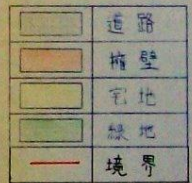 道路
擁壁
宅地
緑地
境界